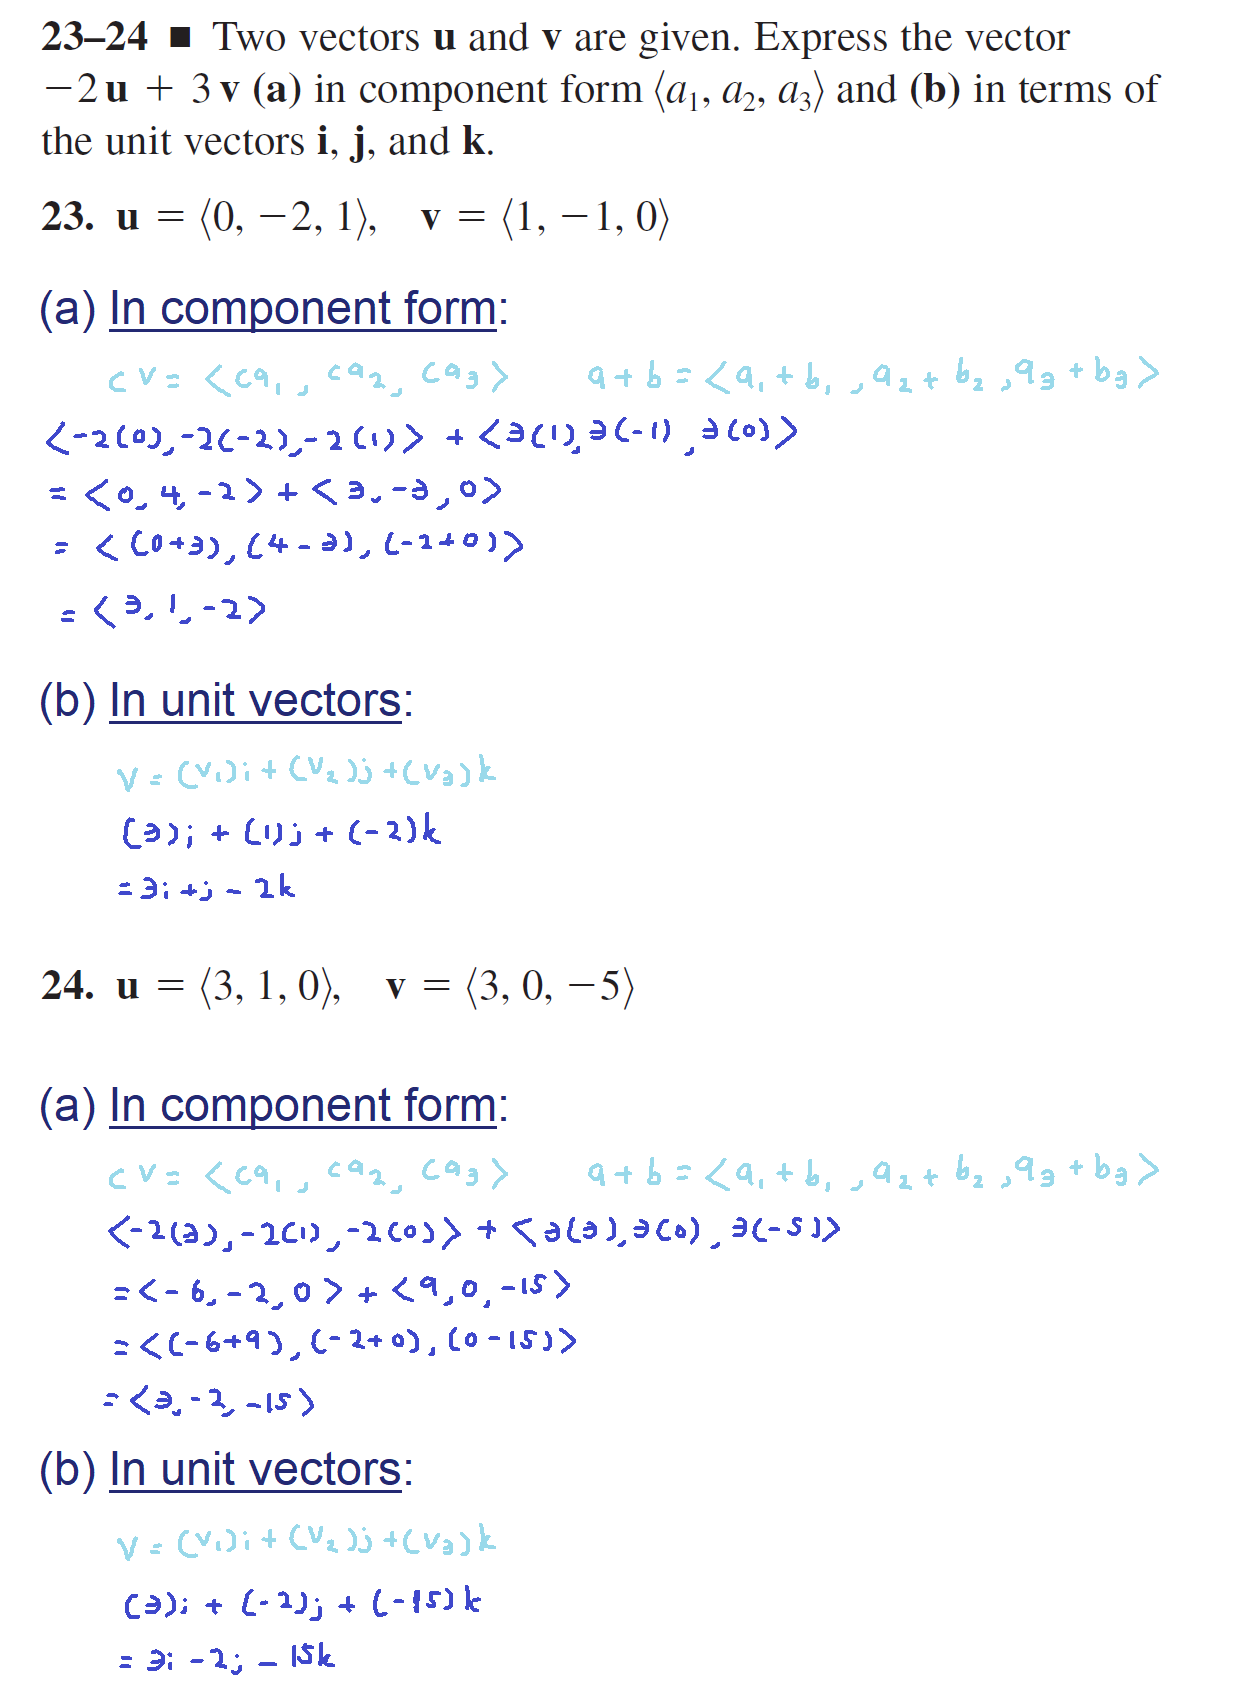 23–24 ■ Two vectors u and v are given. Express the vector
−2u + 3v (a) in component form ⟨a₁, a₂, a₃⟩ and (b) in terms of
the unit vectors i, j, and k.
23. u = ⟨0, −2, 1⟩, v = ⟨1, −1, 0⟩
(a) In component form:
cv = <ca₁, ca₂, ca₃> a+b = <a₁+b₁, a₂+b₂, a₃+b₃>
<-2(0), -2(-2), -2(1)> + <3(1), 3(-1), 3(0)>
= <0, 4, -2> + <3, -3, 0>
= <(0+3), (4-3), (-2+0)>
= <3, 1, -2>
(b) In unit vectors:
v = (v₁)i + (v₂)j + (v₃)k
(3)i + (1)j + (-2)k
= 3i + j - 2k
24. u = ⟨3, 1, 0⟩, v = ⟨3, 0, −5⟩
(a) In component form:
cv = <ca₁, ca₂, ca₃> a+b = <a₁+b₁, a₂+b₂, a₃+b₃>
<-2(3), -2(1), -2(0)> + <3(3), 3(0), 3(-5)>
= <-6, -2, 0> + <9, 0, -15>
= <(-6+9), (-2+0), (0-15)>
= <3, -2, -15>
(b) In unit vectors:
v = (v₁)i + (v₂)j + (v₃)k
(3)i + (-2)j + (-15)k
= 3i - 2j - 15k